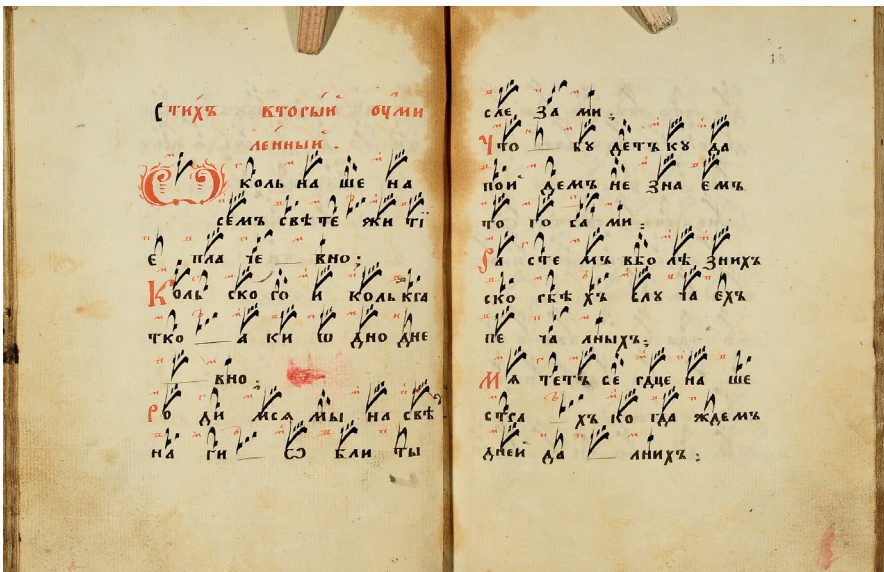 Стихъ вторыи оуми
ленный .
Околь на ше на
семъ свѣте жи тї
е пла че вно ;
Коль ско ро и коль кра
тко а ки ѡ дно дне
вно ;
Ро ди мся мы на свѣ
на ги ѡ бли ты
сле за ми ;
Что бу детъ ку да
пои демъ не зна емъ
то го са ми ;
Ра сте мъ вбо лѣ знихъ
ско рбѣ хъ слу ча ехъ
пе ча лныхъ ;
Мя тетъ се рдце на ше
стра хъ ко гда ждемъ
дней да лнихъ ;
13